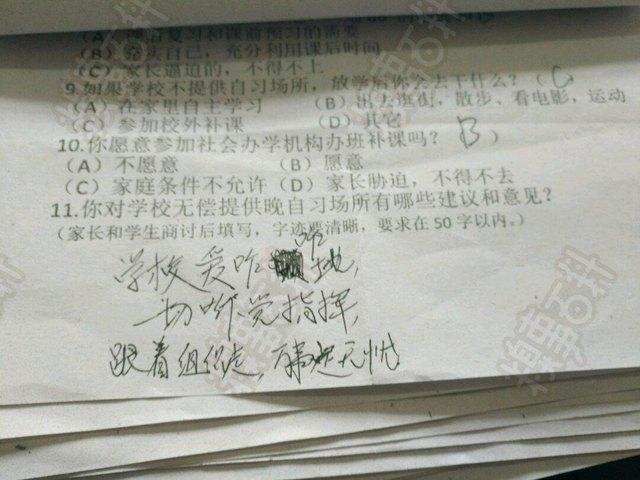 (B) 充实自己，充分利用课后时间
(C) 家长逼迫的，不得不上
9.如果学校不提供自习场所，放学后你会去干什么？（C
(A) 在家里自主学习 (B) 出去逛街，散步、看电影，运动
(C) 参加校外补课 (D) 其它
10.你愿意参加社会办学机构办班补课吗？ B ）
(A) 不愿意 (B) 愿意
(C) 家庭条件不允许 (D) 家长胁迫，不得不去
11.你对学校无偿提供晚自习场所有哪些建议和意见？
（家长和学生商讨后填写，字迹要清晰，要求在 50 字以内。）
学校爱咋咋地，
一切听党指挥，
跟着组织走，万事无忧